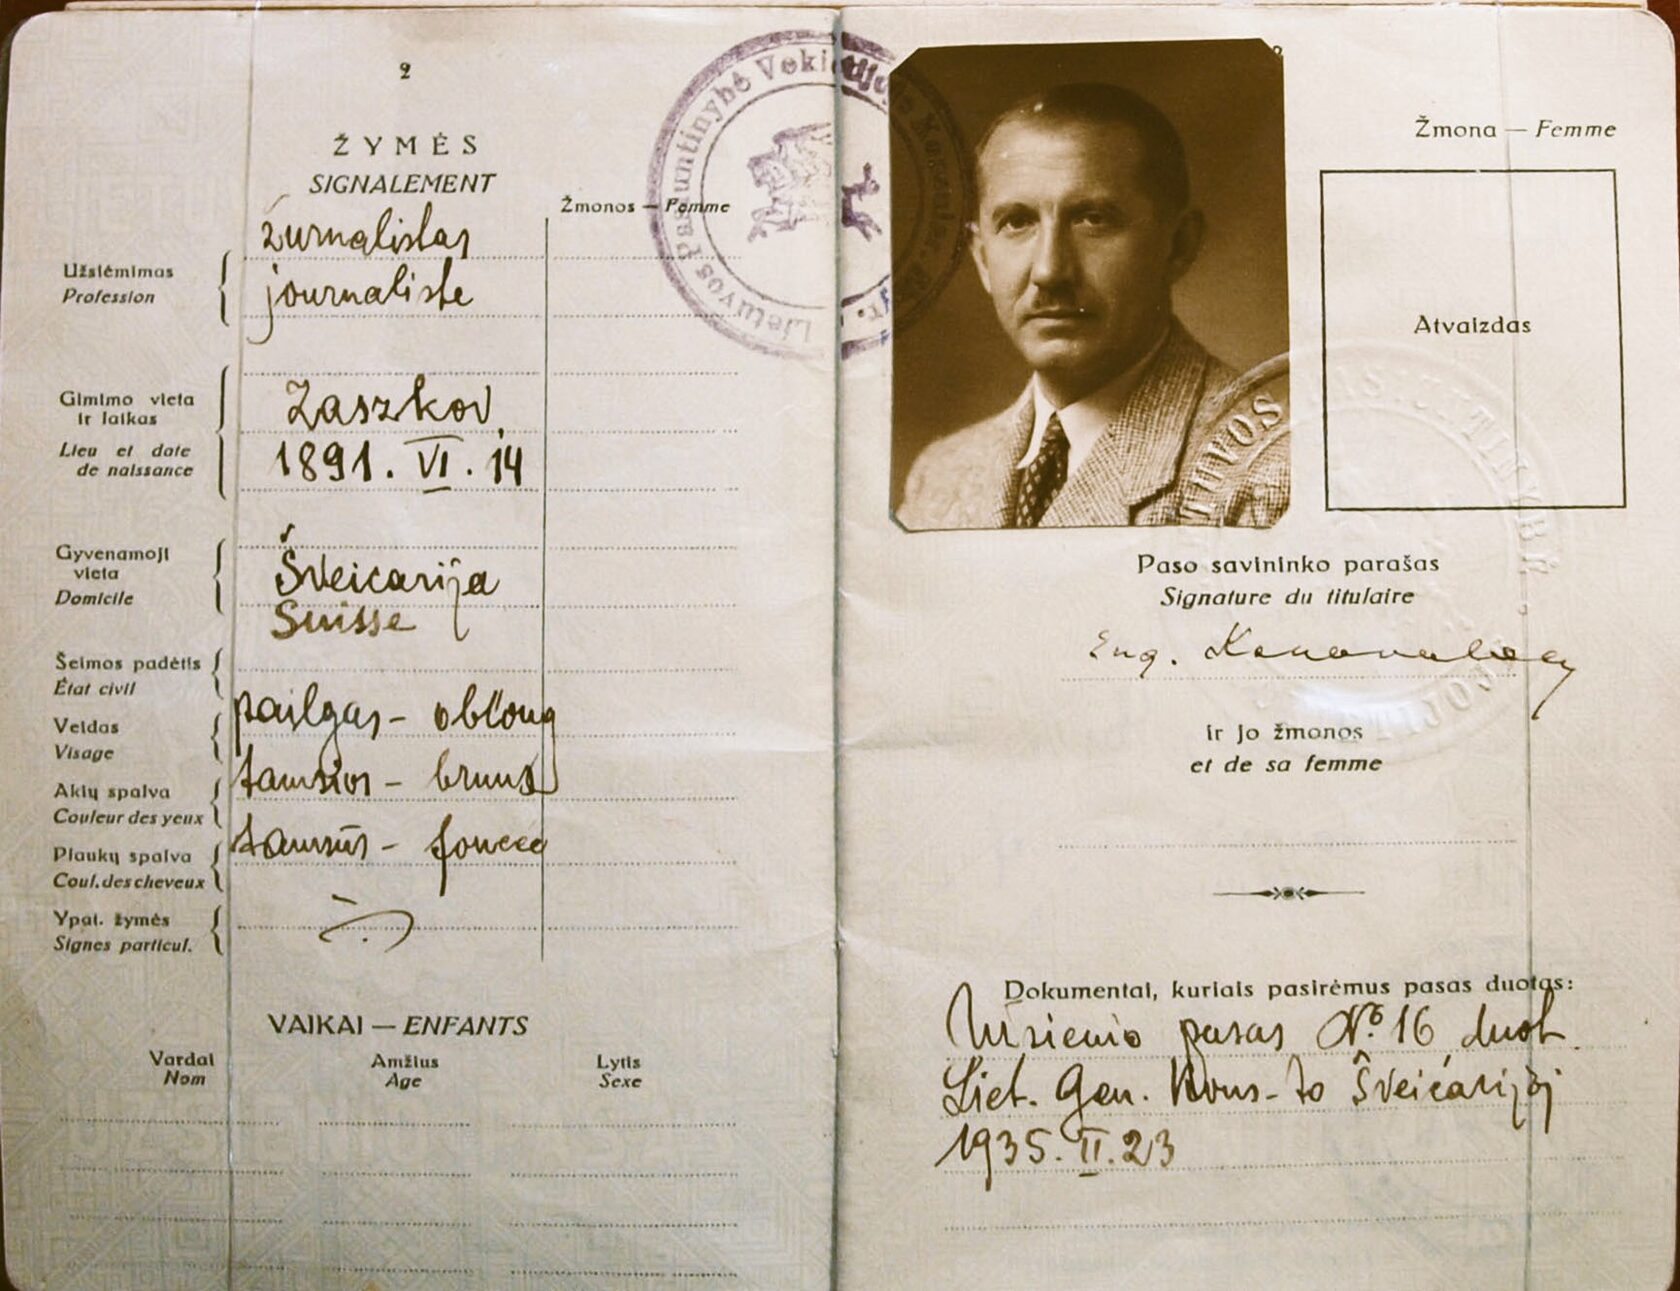 2
ŽYMĖS
SIGNALEMENT
Žmonos — Femme
Užsiėmimas
Profession
žurnalistas
journaliste
Gimimo vieta
ir laikas
Lieu et date
de naissance
Zaszkov,
1891. VI. 14
Gyvenamoji
vieta
Domicile
Šveicarija
Suisse
Šeimos padėtis
État civil
Veidas
Visage
pailgas - oblong
Akių spalva
Couleur des yeux
tamsios - bruns
Plaukų spalva
Coul. des cheveux
tamsūs - foncée
Ypat. žymės
Signes particul.
VAIKAI — ENFANTS
Vardai
Nom
Amžius
Age
Lytis
Sexe
Lietuvos Pasiuntinybė Vokietijoje
Žmona — Femme
Atvaizdas
Paso savininko parašas
Signature du titulaire
Eug. Konovalec
ir jo žmonos
et de sa femme
Dokumentai, kuriais pasirėmus pasas duotas:
Užsienio pasas № 16 duot.
Liet. Gen. Kons-to Šveicarijoj
1935. II. 23